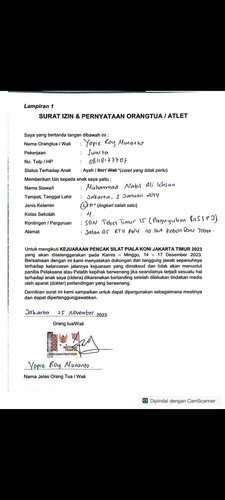 Lampiran 1
SURAT IZIN & PERNYATAAN ORANGTUA / ATLET
Saya yang bertanda tangan dibawah ini :
Nama Orangtua / Wali : Yopie Roy Munanto
Pekerjaan : Swasta
No. Telp / HP : 08118177707
Status Terhadap Anak : Ayah / Ibu / Wali *(coret yang tidak perlu)
Memberikan izin kepada anak saya yaitu :
Nama Siswa/i : Muhammad Nabil Ali Ichsan
Tempat, Tanggal Lahir : Jakarta, 2 Januari 2014
Jenis Kelamin : L P * (lingkari salah satu)
Kelas Sekolah : 4
Kontingen / Perguruan : SDN Tebet Timur 15 (Perguruan
Alamat : Jalan RT no. Kebon Baru Tebet
Untuk mengikuti KEJUARAAN PENCAK SILAT PIALA KONI JAKARTA TIMUR 2023
yang akan diselenggarakan pada Kamis – Minggu, 14 – 17 Desember 2023.
Bersamaan dengan ini kami menyatakan dukungan dan tanggung jawab sepenuhnya
terhadap kelancaran jalannya kejuaraan yang dimaksud dan tidak akan menuntut
panitia Pelaksana atau Pelatih kepihak berwenang jika seandainya terjadi sesuatu hal
terhadap anak saya (cidera) dikarenakan bertanding setelah dilakukan tindakan medis
oleh aparat (dokter) pertandingan yang berwenang.
Demikian surat ini kami sampaikan untuk dapat dipergunakan sebagaimana mestinya
dan dapat dipertanggungjawabkan.
Jakarta 25 November 2023
Orang tua/Wali
Yopie Roy Munanto
Nama Jelas Orang Tua / Wali
Dipindai dengan CamScanner